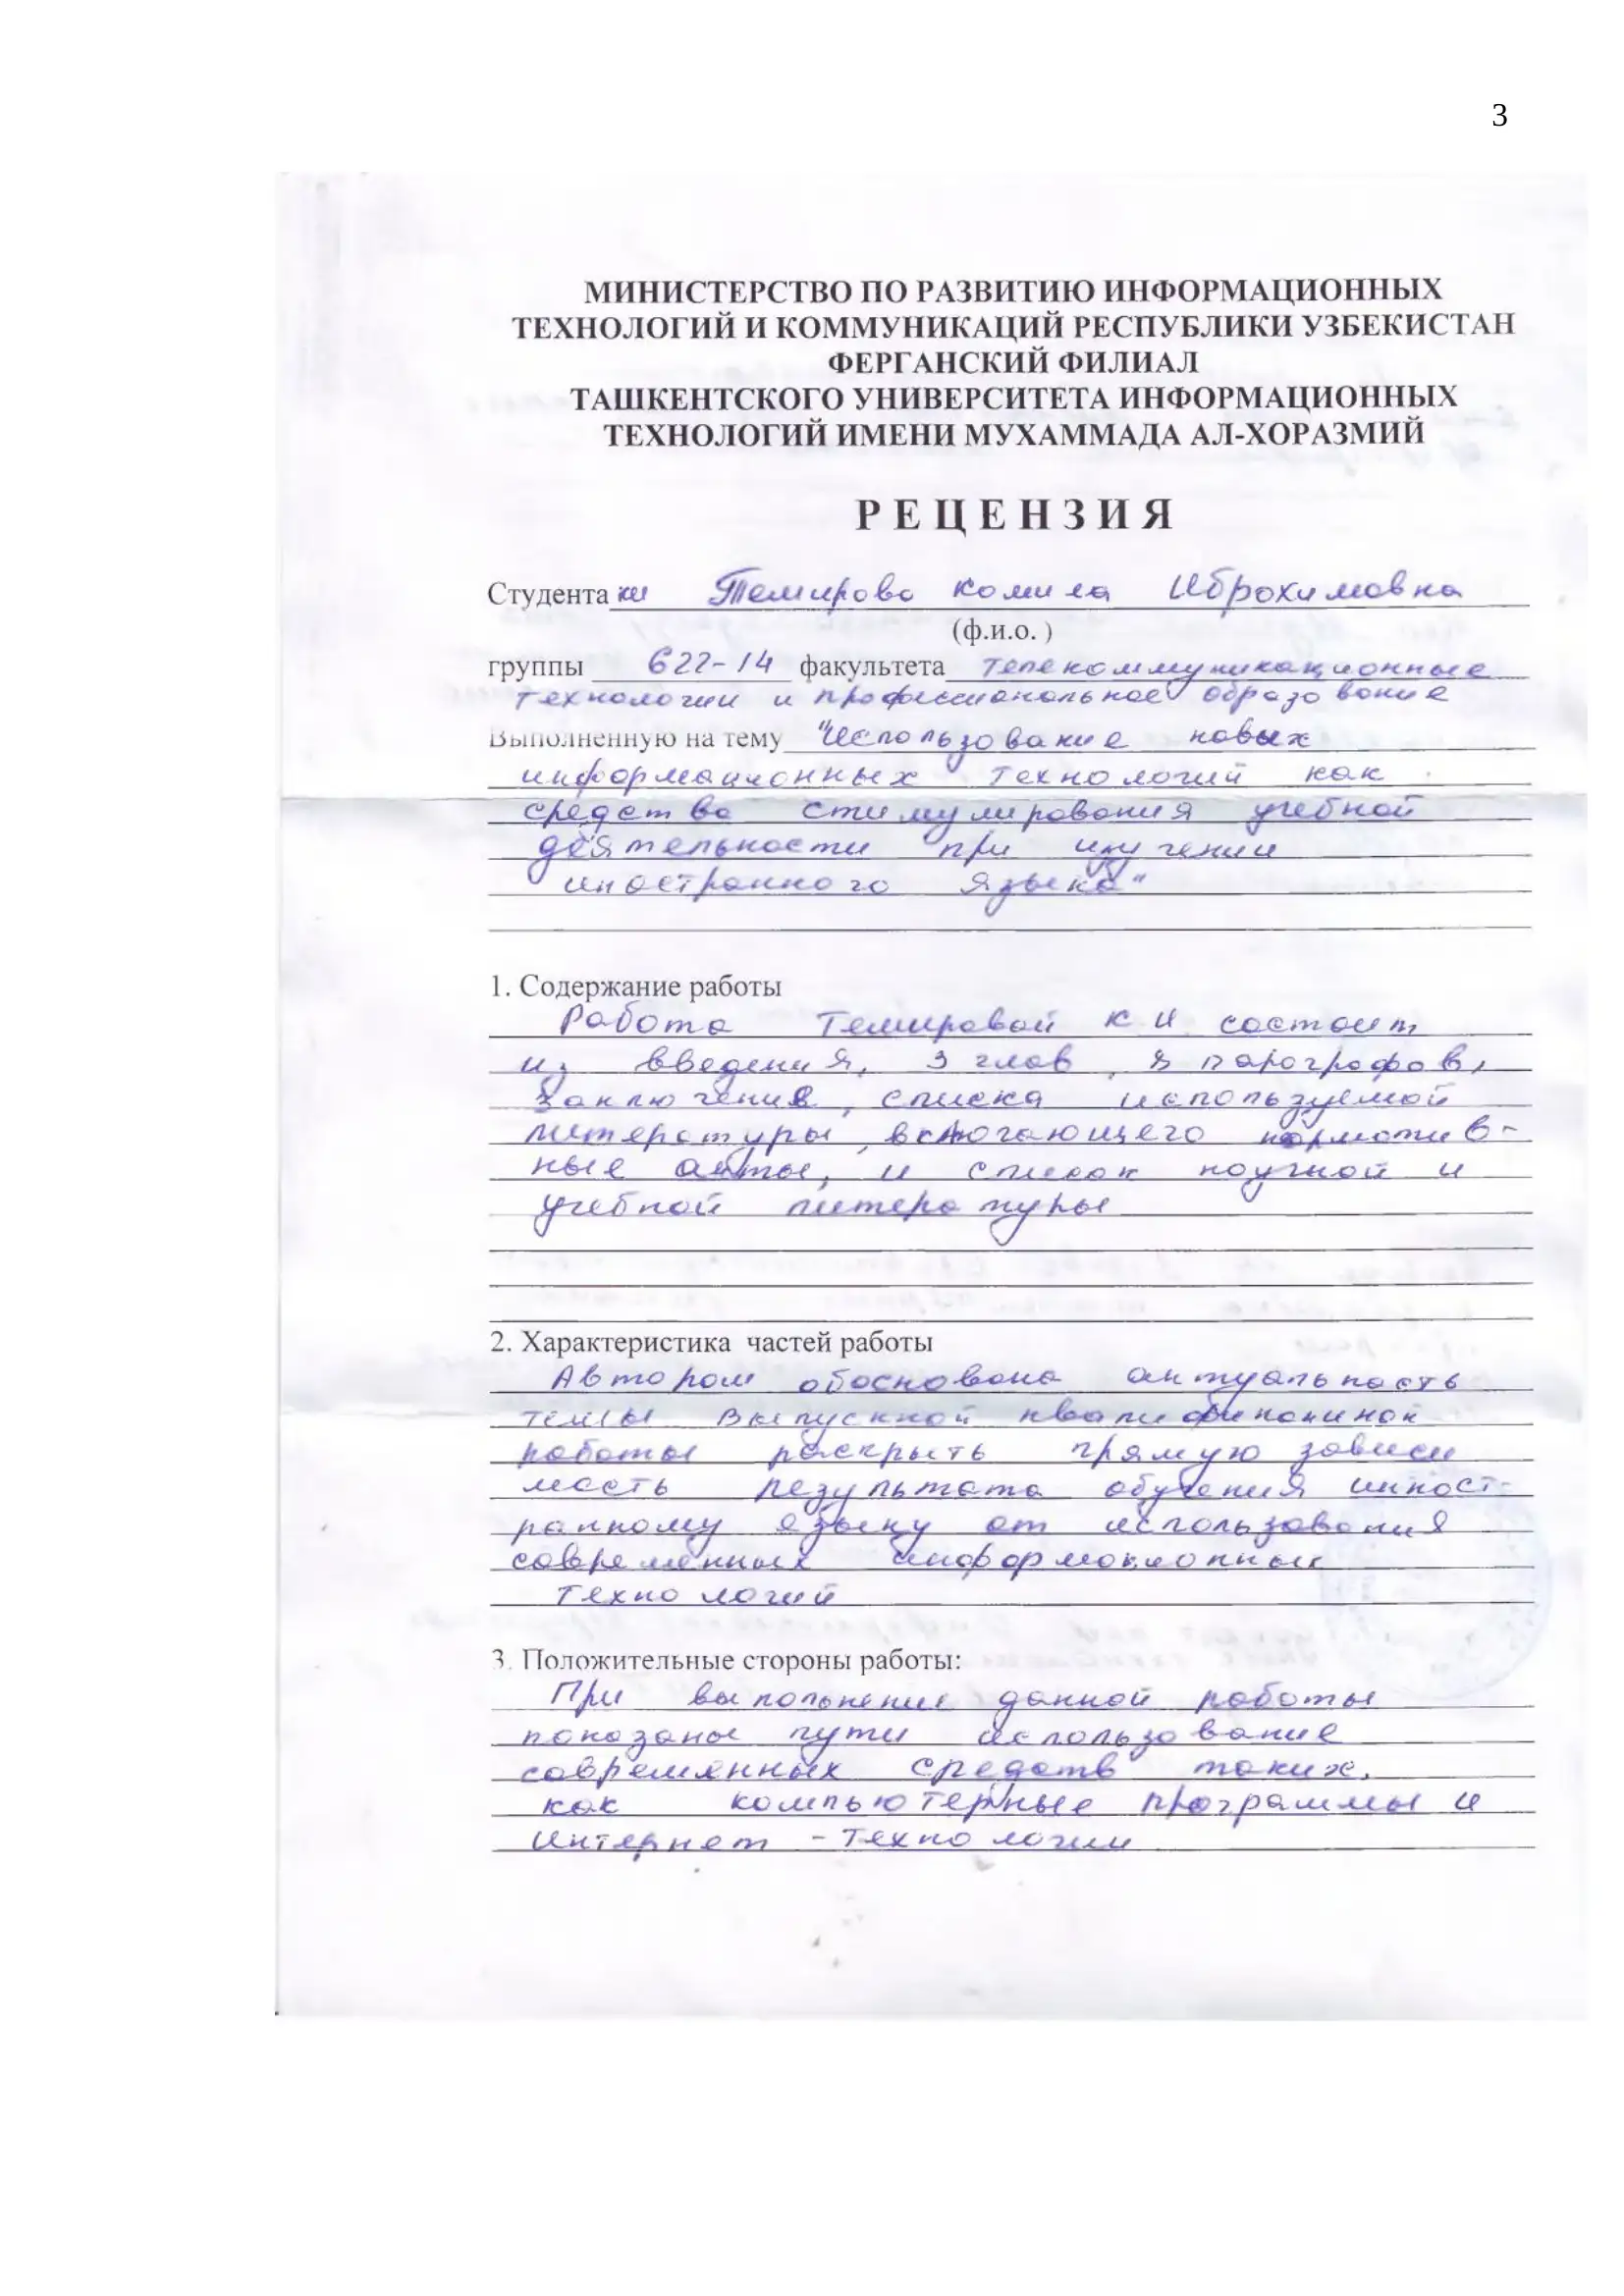 3
МИНИСТЕРСТВО ПО РАЗВИТИЮ ИНФОРМАЦИОННЫХ
ТЕХНОЛОГИЙ И КОММУНИКАЦИЙ РЕСПУБЛИКИ УЗБЕКИСТАН
ФЕРГАНСКИЙ ФИЛИАЛ
ТАШКЕНТСКОГО УНИВЕРСИТЕТА ИНФОРМАЦИОННЫХ
ТЕХНОЛОГИЙ ИМЕНИ МУХАММАДА АЛ-ХОРАЗМИЙ
Р Е Ц Е Н З И Я
Студентаки Темирова Комила Иброхимовна
(ф.и.о. )
группы 622-14 факультета телекоммуникационные
технологии и профессиональное образование
Выполненную на тему "Использование новых
информационных технологий как
средство стимулирования учебной
деятельности при изучении
иностранного языка"
1. Содержание работы
Работа Темировой К И состоит
из введения, 3 глав, параграфов,
Заключения, списка используемой
литературы, включающего норматив-
ные акты, и список научной и
учебной литературы
2. Характеристика частей работы
Автором обоснована актуальность
темы выпускной
работы раскрыть прямую зависи
мость результата обучения иност-
ранному языку от использования
современных информационных
технологий
3. Положительные стороны работы:
При выполнение данной работы
показаны пути использование
современных средств таких,
как компьютерные программы и
Интернет - технологии